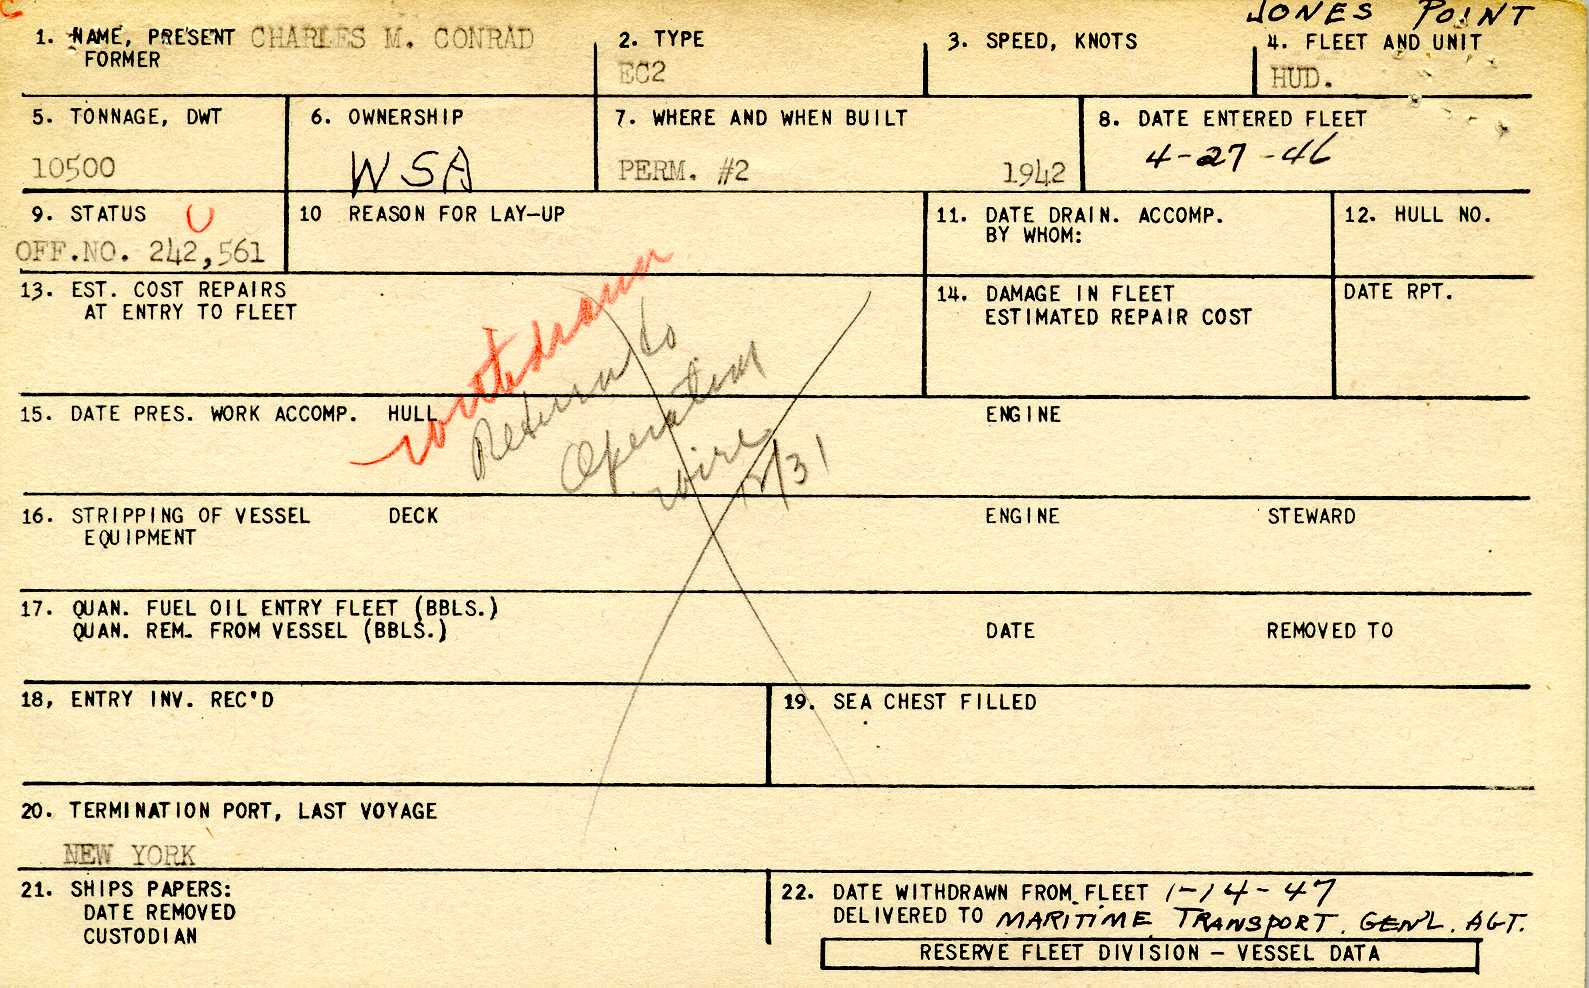 JONES POINT
1. NAME, PRESENT CHARLES M. CONRAD
FORMER
2. TYPE
EC2
3. SPEED, KNOTS
4. FLEET AND UNIT
HUD.
5. TONNAGE, DWT
10500
6. OWNERSHIP
WSA
7. WHERE AND WHEN BUILT
PERM. #2 1942
8. DATE ENTERED FLEET
4-27-46
9. STATUS U
OFF.NO. 242,561
10 REASON FOR LAY-UP
11. DATE DRAIN. ACCOMP.
BY WHOM:
12. HULL NO.
13. EST. COST REPAIRS
AT ENTRY TO FLEET
14. DAMAGE IN FLEET
ESTIMATED REPAIR COST
DATE RPT.
withdrawn
Return to
Operation
wire 12/31
15. DATE PRES. WORK ACCOMP. HULL ENGINE
16. STRIPPING OF VESSEL DECK ENGINE STEWARD
EQUIPMENT
17. QUAN. FUEL OIL ENTRY FLEET (BBLS.)
QUAN. REM. FROM VESSEL (BBLS.) DATE REMOVED TO
18, ENTRY INV. REC'D
19. SEA CHEST FILLED
20. TERMINATION PORT, LAST VOYAGE
NEW YORK
21. SHIPS PAPERS:
DATE REMOVED
CUSTODIAN
22. DATE WITHDRAWN FROM FLEET 1-14-47
DELIVERED TO MARITIME TRANSPORT. GEN'L. AGT.
RESERVE FLEET DIVISION - VESSEL DATA